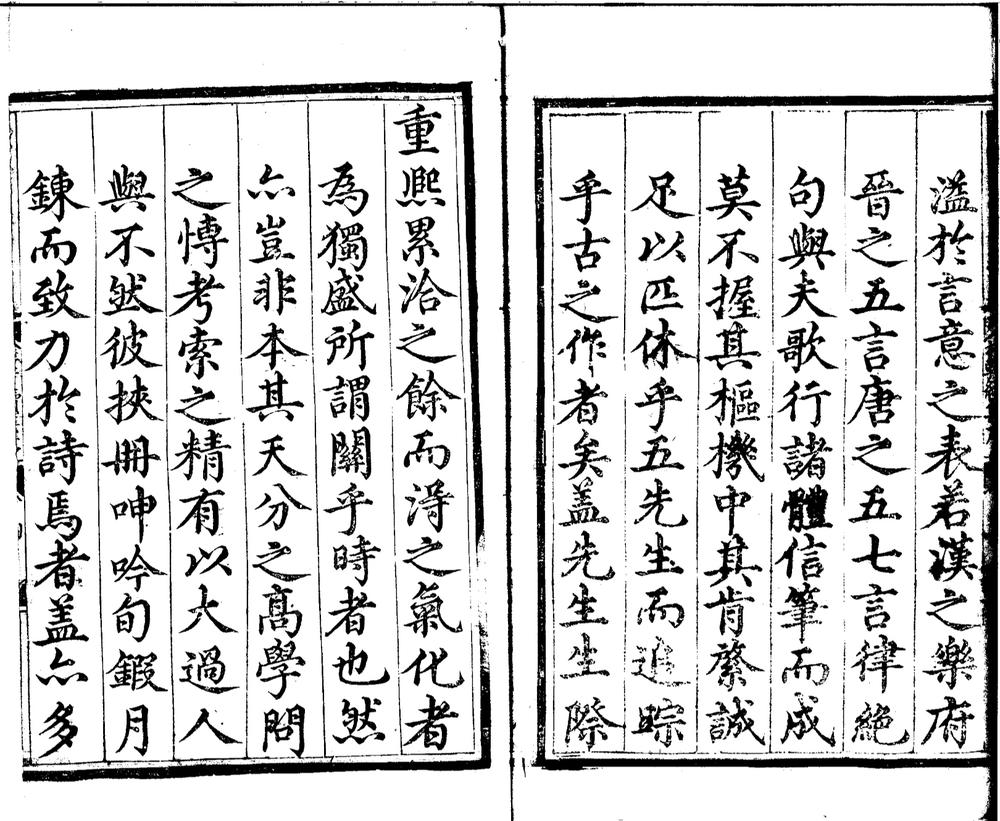 溢於言意之表若漢之樂府
晉之五言唐之五七言律絕
句與夫歌行諸體信筆而成
莫不握其樞機中其肯綮誠
足以匹休乎五先生而追踪
乎古之作者矣盖先生生際
重熈累洽之餘而淂之氣化者
為獨盛所謂關乎時者也然
亦豈非本其天分之髙學問
之愽考索之精有以大過人
與不然彼挾冊呻吟旬鍜月
鍊而致力於詩焉者盖亦多